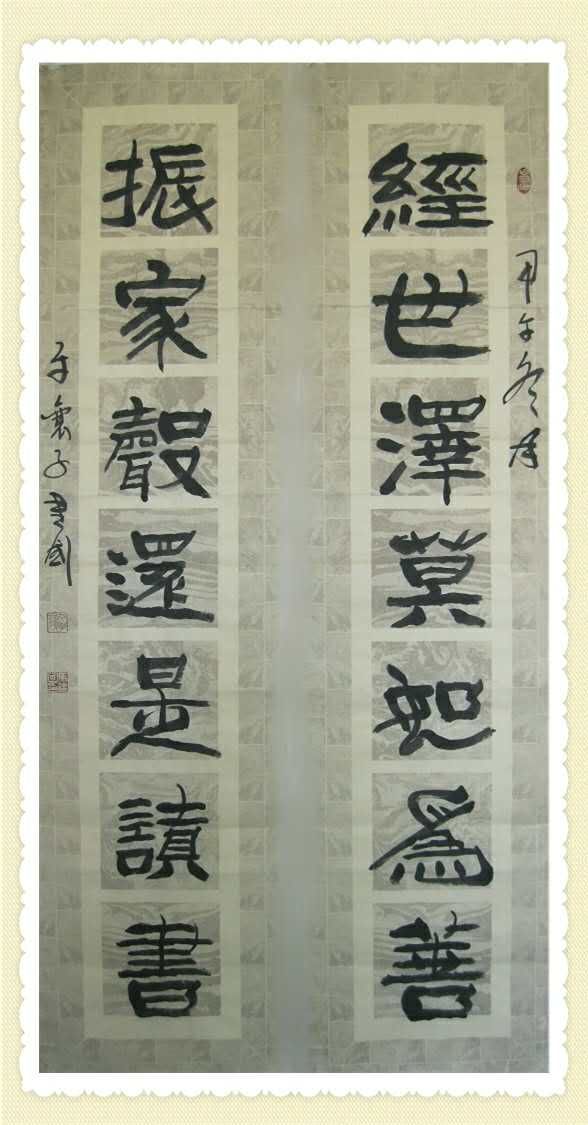 甲午冬月
經世澤莫如爲善
振家聲還是讀書